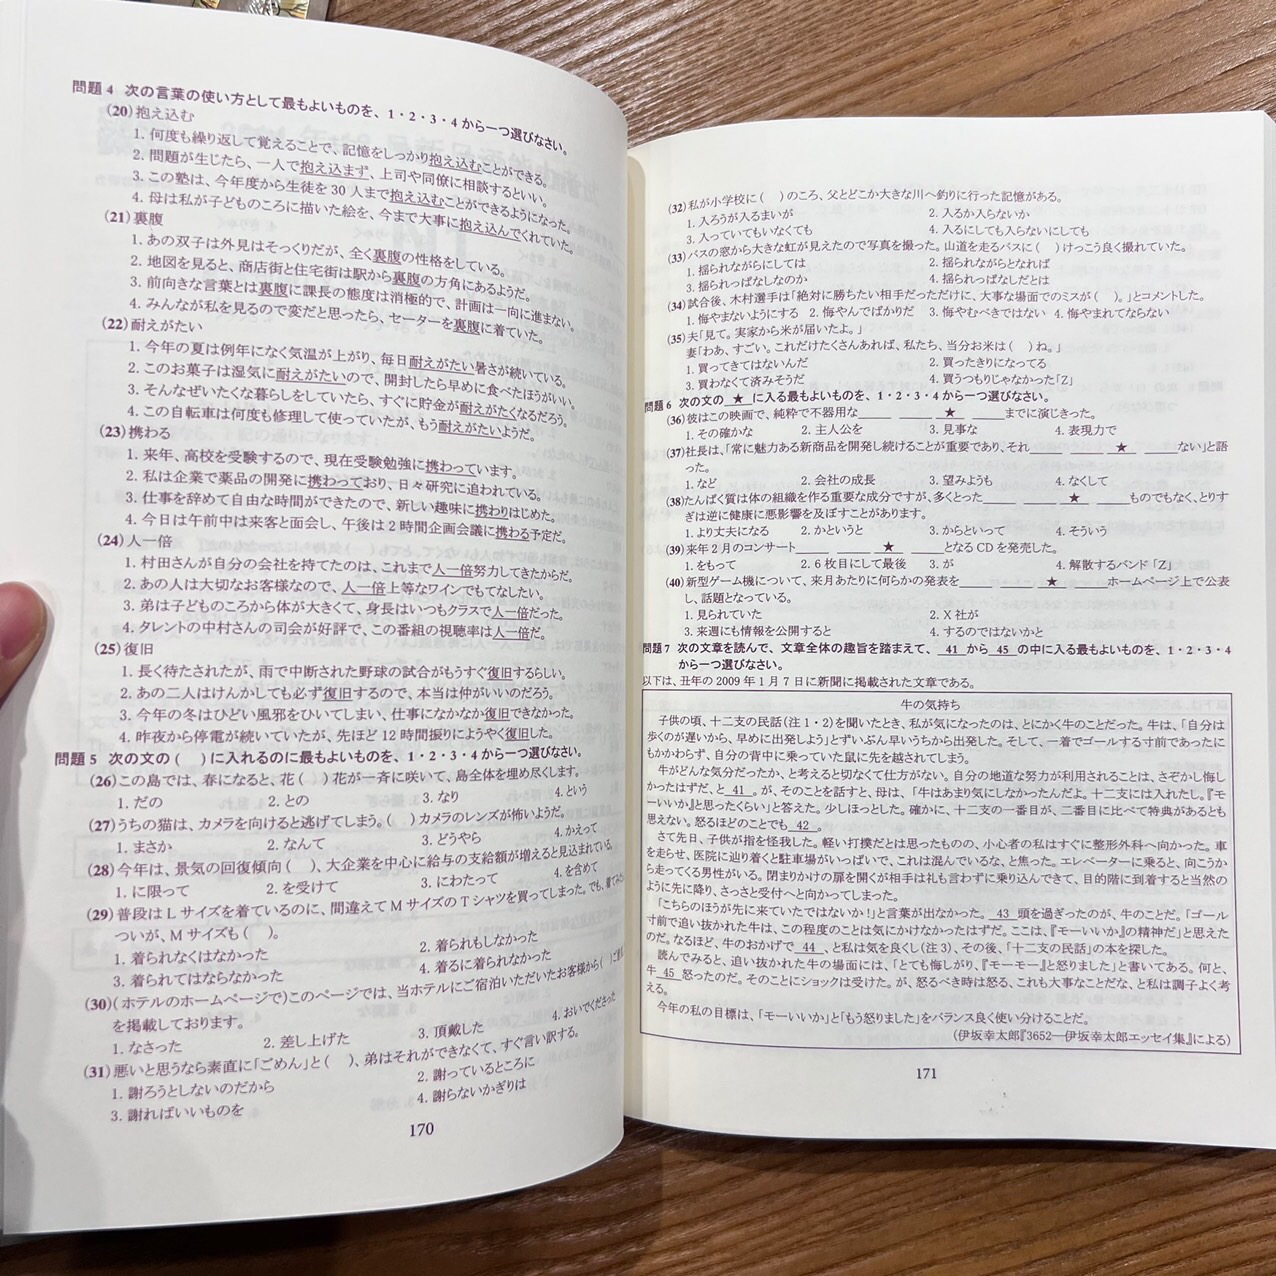 問題4 次の言葉の使い方として最もよいものを、1・2・3・4から一つ選びなさい。
(20)抱え込む
1. 何度も繰り返して覚えることで、記憶をしっかり抱え込むことができる。
2. 問題が生じたら、一人で抱え込まず、上司や同僚に相談するといい。
3. この塾は、今年度から生徒を30人まで抱え込むことができるようになった。
4. 母は私が子どものころに描いた絵を、今まで大事に抱え込んでくれていた。
(21)裏腹
1. あの双子は外見はそっくりだが、全く裏腹の性格をしている。
2. 地図を見ると、商店街と住宅街は駅から裏腹の方角にあるようだ。
3. 前向きな言葉とは裏腹に課長の態度は消極的で、計画は一向に進まない。
4. みんなが私を見るので変だと思ったら、セーターを裏腹に着ていた。
(22)耐えがたい
1. 今年の夏は例年になく気温が上がり、毎日耐えがたい暑さが続いている。
2. このお菓子は湿気に耐えがたいので、開封したら早めに食べたほうがいい。
3. そんなぜいたくな暮らしをしていたら、すぐに貯金が耐えがたくなるだろう。
4. この自転車は何度も修理して使っていたが、もう耐えがたいようだ。
(23)携わる
1. 来年、高校を受験するので、現在受験勉強に携わっています。
2. 私は企業で薬品の開発に携わっており、日々研究に追われている。
3. 仕事を辞めて自由な時間ができたので、新しい趣味に携わりはじめた。
4. 今日は午前中は来客と面会し、午後は2時間企画会議に携わる予定だ。
(24)人一倍
1. 村田さんが自分の会社を持てたのは、これまで人一倍努力してきたからだ。
2. あの人は大切なお客様なので、人一倍上等なワインでもてなしたい。
3. 弟は子どものころから体が大きくて、身長はいつもクラスで人一倍だった。
4. タレントの中村さんの司会が好評で、この番組の視聴率は人一倍だ。
(25)復旧
1. 長く待たされたが、雨で中断された野球の試合がもうすぐ復旧するらしい。
2. あの二人はけんかしても必ず復旧するので、本当は仲がいいのだろう。
3. 今年の冬はひどい風邪をひいてしまい、仕事になかなか復旧できなかった。
4. 昨夜から停電が続いていたが、先ほど12時間振りにようやく復旧した。
問題5 次の文の( )に入れるのに最もよいものを、1・2・3・4から一つ選びなさい。
(26)この島では、春になると、花( )花が一斉に咲いて、島全体を埋め尽くします。
1. だの 2. との 3. なり 4. という
(27)うちの猫は、カメラを向けると逃げてしまう。( )カメラのレンズが怖いようだ。
1. まさか 2. なんて 3. どうやら 4. かえって
(28)今年は、景気の回復傾向( )、大企業を中心に給与の支給額が増えると見込まれている。
1. に限って 2. を受けて 3. にわたって 4. を含めて
(29)普段はLサイズを着ているのに、間違えてMサイズのTシャツを買ってしまった。でも、着てみた
ついが、Mサイズも( )。
1. 着られなくはなかった 2. 着られもしなかった
3. 着られてはならなかった 4. 着るに着られなかった
(30)(ホテルのホームページで)このページでは、当ホテルにご宿泊いただいたお客様から( )ご
を掲載しております。
1. なさった 2. 差し上げた 3. 頂戴した 4. おいでくださった
(31)悪いと思うなら素直に「ごめん」と( )、弟はそれができなくて、すぐ言い訳する。
1. 謝ろうとしないのだから 2. 謝っているところに
3. 謝ればいいものを 4. 謝らないかぎりは
170
(32)私が小学校に( )のころ、父とどこか大きな川へ釣りに行った記憶がある。
1. 入ろうが入るまいが 2. 入るか入らないか
3. 入っていてもいなくても 4. 入るにしても入らないにしても
(33)バスの窓から大きな虹が見えたので写真を撮った。山道を走るバスに( )けっこう良く撮れていた。
1. 揺られながらにしては 2. 揺られながらとなれば
3. 揺られっぱなしなのか 4. 揺られっぱなしだとは
(34)試合後、木村選手は「絶対に勝ちたい相手だっただけに、大事な場面でのミスが( )。」とコメントした。
1. 悔やまないようにする 2. 悔やんでばかりだ 3. 悔やむべきではない 4. 悔やまれてならない
(35)夫「見て。実家から米が届いたよ。」
妻「わあ、すごい。これだけたくさんあれば、私たち、当分お米は( )ね。」
1. 買ってきてはないんだ 2. 買ったきりになってる
3. 買わなくて済みそうだ 4. 買うつもりじゃなかった「Z」
問題6 次の文の ★ に入る最もよいものを、1・2・3・4から一つ選びなさい。
(36)彼はこの映画で、純粋で不器用な____ ____ __★__ ____までに演じきった。
1. その確かな 2. 主人公を 3. 見事な 4. 表現力で
(37)社長は、「常に魅力ある新商品を開発し続けることが重要であり、それ____ ____ __★__ ____ない」と語
った。
1. など 2. 会社の成長 3. 望みようも 4. なくして
(38)たんぱく質は体の組織を作る重要な成分ですが、多くとった____ ____ __★__ ____ものでもなく、とりす
ぎは逆に健康に悪影響を及ぼすことがあります。
1. より丈夫になる 2. かというと 3. からといって 4. そういう
(39)来年2月のコンサート____ ____ __★__ ____となるCDを発売した。
1. をもって 2. 6枚目にして最後 3. が 4. 解散するバンド「Z」
(40)新型ゲーム機について、来月あたりに何らかの発表を____ ____ __★__ ____ホームページ上で公表
し、話題となっている。
1. 見られていた 2. X社が
3. 来週にも情報を公開すると 4. するのではないかと
問題7 次の文章を読んで、文章全体の趣旨を踏まえて、 41 から 45 の中に入る最もよいものを、1・2・3・4
から一つ選びなさい。
以下は、丑年の2009年1月7日に新聞に掲載された文章である。
牛の気持ち
子供の頃、十二支の民話(注1・2)を聞いたとき、私が気になったのは、とにかく牛のことだった。牛は、「自分は
歩くのが遅いから、早めに出発しよう」とずいぶん早いうちから出発した。そして、一着でゴールする寸前であったに
もかかわらず、自分の背中に乗っていた鼠に先を越されてしまう。
牛がどんな気分だったか、と考えると切なくて仕方がない。自分の地道な努力が利用されることは、さぞかし悔し
かったはずだ、と 41 。が、そのことを話すと、母は、「牛はあまり気にしなかったんだよ。十二支には入れたし。『モ
ーいいか』と思ったくらい」と答えた。少しほっとした。確かに、十二支の一番目が、二番目に比べて特典があるとも
思えない。怒るほどのことでも 42 。
さて先日、子供が指を怪我した。軽い打撲だとは思ったものの、小心者の私はすぐに整形外科へ向かった。車
を走らせ、医院に辿り着くと駐車場がいっぱいで、これは混んでいるな、と焦った。エレベーターに乗ると、向こうか
ら走ってくる男性がいる。閉まりかけの扉を開くが相手は礼も言わずに乗り込んできて、目的階に到着すると当然の
ように先に降り、さっさと受付へと向かってしまった。
「こちらのほうが先に来ていたではないか!」と言葉が出なかった。 43 頭を過ぎったのが、牛のことだ。「ゴール
寸前で追い抜かれた牛は、この程度のことは気にかけなかったはずだ。ここは、『モーいいか』の精神だ」と思えた
のだ。なるほど、牛のおかげで 44 、と私は気を良くし(注3)、その後、「十二支の民話」の本を探した。
読んでみると、追い抜かれた牛の場面には、「とても悔しがり、『モーモー』と怒りました」と書いてある。何と、
牛 45 怒ったのだ。そのことにショックは受けた。が、怒るべき時は怒る、これも大事なことだな、と私は調子よく考
える。
今年の私の目標は、「モーいいか」と「もう怒りました」をバランス良く使い分けることだ。
(伊坂幸太郎『3652―伊坂幸太郎エッセイ集』による)
171